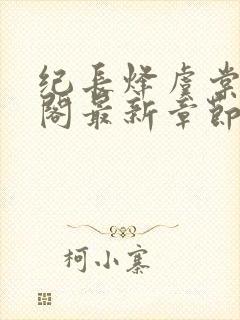 纪长烽虞棠
阁最新章节
柯小寨